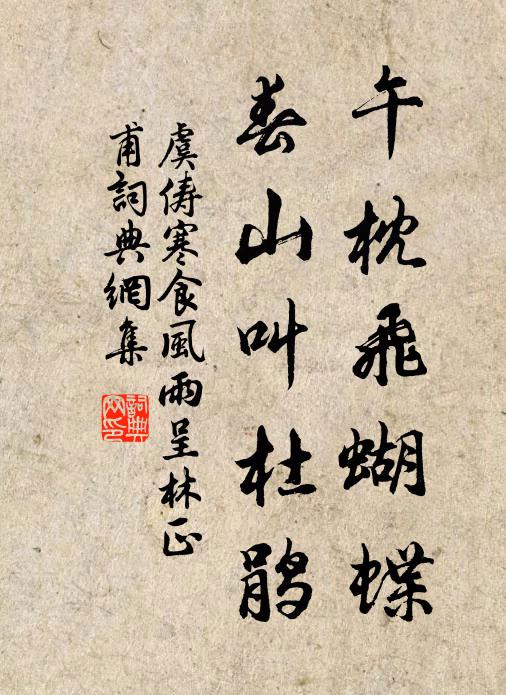 午枕飛蝴蝶
春山叫杜鵑
虞儔寒食風雨呈林正
甫詞典網集
詞典网印